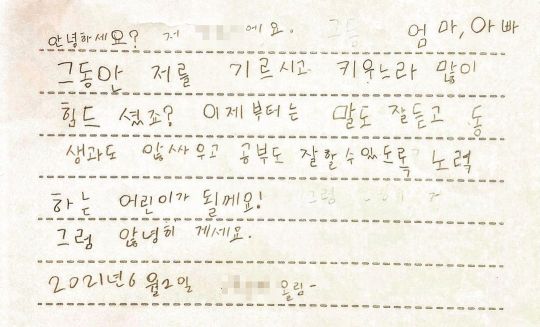 안녕하세요? 저 에요. 엄마, 아빠
그동안 저를 기르시고 키우느라 많이
힘드셨죠? 이제부터는 말도 잘듣고 동
생과도 않싸우고 공부도 잘할수있도록 노력
하는 어린이가 될께요!
그럼 않녕히 게세요.
2021년 6월2일 올림-